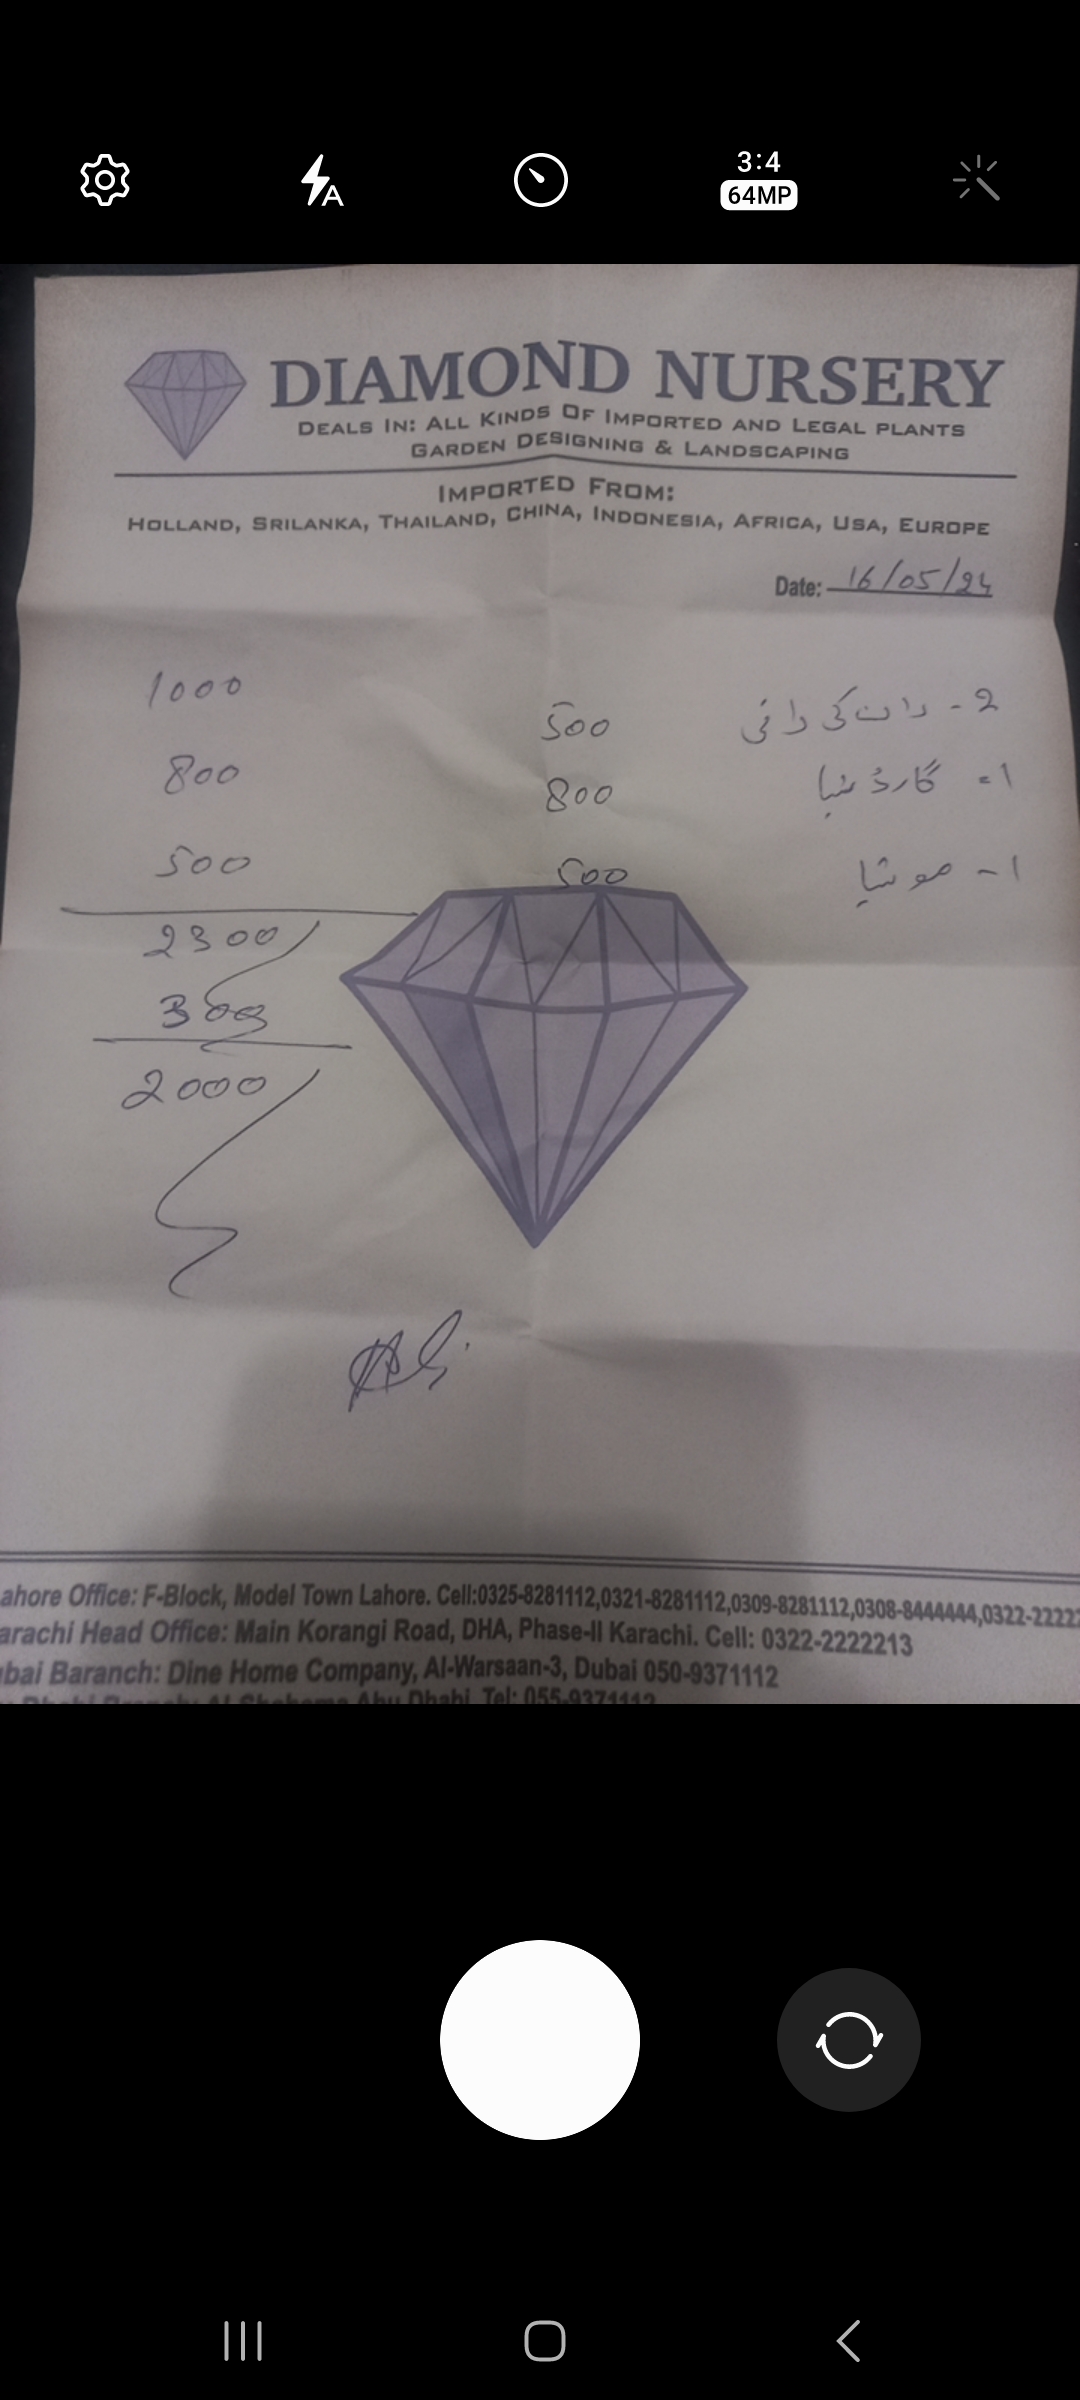 3:4
64MP
DIAMOND NURSERY
DEALS IN: ALL KINDS OF IMPORTED AND LEGAL PLANTS
GARDEN DESIGNING & LANDSCAPING
IMPORTED FROM:
HOLLAND, SRILANKA, THAILAND, CHINA, INDONESIA, AFRICA, USA, EUROPE
Date: 16/05/24
2- رات کی رانی 500 1000
1- گارڈینیا 800 800
1- موتیا 500 500
2300
300
2000
Ali
ahore Office: F-Block, Model Town Lahore. Cell:0325-8281112,0321-8281112,0309-8281112,0308-8444444,0322-2222
arachi Head Office: Main Korangi Road, DHA, Phase-II Karachi. Cell: 0322-2222213
bai Baranch: Dine Home Company, Al-Warsaan-3, Dubai 050-9371112
Abu Dhabi. Tel: 055-9371112